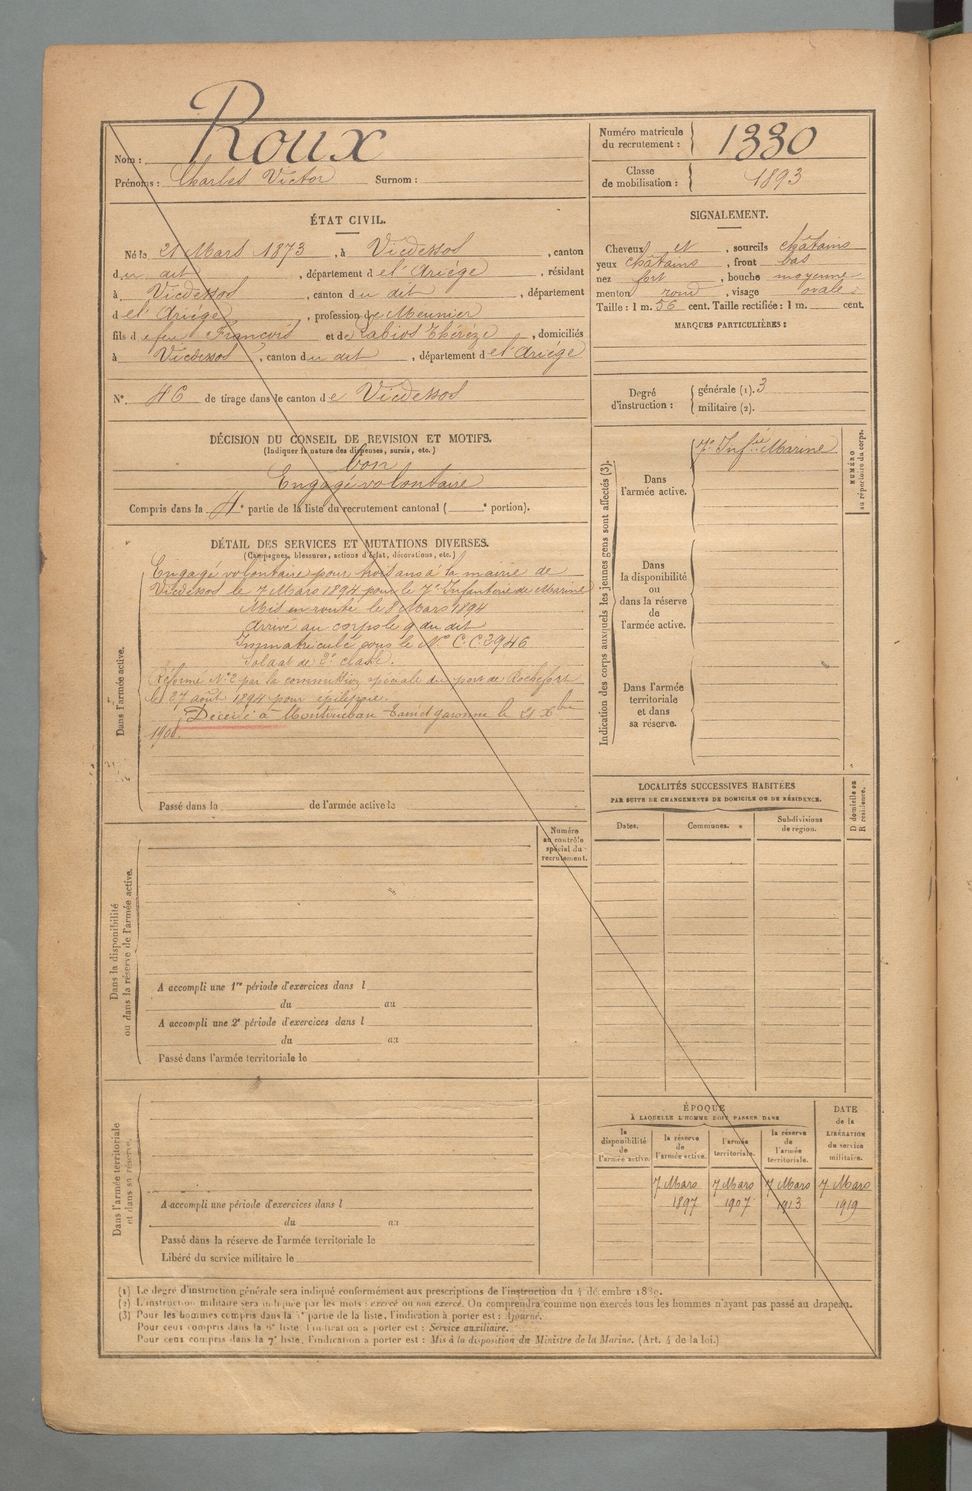 Nom : Roux
Prénoms : Charles Victor Surnom :
Numéro matricule
du recrutement : 1330
Classe
de mobilisation : 1893
ÉTAT CIVIL.
Né le 21 Mars 1873, à Vicdessos, canton
du dit, département de l'Ariége, résidant
à Vicdessos, canton du dit, département
de l'Ariége, profession de Meunier
fils de feu François et de Thérèze, domiciliés
à Vicdessos, canton du dit, département de l'Ariége
N°. 46 de tirage dans le canton de Vicdessos
DÉCISION DU CONSEIL DE REVISION ET MOTIFS.
(Indiquer la nature des dispenses, sursis, etc.)
bon
Engagé volontaire
Compris dans la 4e partie de la liste du recrutement cantonal ( e portion).
DÉTAIL DES SERVICES ET MUTATIONS DIVERSES.
(Campagnes, blessures, actions d'éclat, décorations, etc.)
Dans l'armée active.
Engagé volontaire pour trois ans à la mairie de
Vicdessos le 7 Mars 1894 pour le 7e Infanterie de Marine
Mis en route le 8 Mars 1894
Arrivé au corps le 9 du dit
Immatriculé sous le N° C.C. 3946
Soldat de 2e classe.
Réformé N°2 par la commission spéciale du port de Rochefort
le 27 août 1894 pour épilepsie.
Décédé à Montauban Tarn et garonne le 21 Xbre
1900.
Passé dans la de l'armée active le
Numéro
au contrôle
spécial du
recrutement.
Dans la disponibilité
ou dans la réserve de l'armée active.
A accompli une 1re période d'exercices dans l
du au
A accompli une 2e période d'exercices dans l
du au
Passé dans l'armée territoriale le
Dans l'armée territoriale
et dans sa réserve.
A accompli une période d'exercices dans l
du au
Passé dans la réserve de l'armée territoriale le
Libéré du service militaire le
SIGNALEMENT.
Cheveux et, sourcils châtains
yeux châtains, front bas
nez fort, bouche moyenne
menton rond, visage ovale
Taille : 1 m. 56 cent. Taille rectifiée : 1 m. cent.
MARQUES PARTICULIÈRES :
Degré
d'instruction :
générale (1). 3
militaire (2).
Indication des corps auxquels les jeunes gens sont affectés (3).
Dans
l'armée active.
7e Infie Marine
Dans
la disponibilité
ou
dans la réserve
de
l'armée active.
Dans l'armée
territoriale
et dans
sa réserve.
NUMÉRO
au répertoire du corps.
LOCALITÉS SUCCESSIVES HABITÉES
PAR SUITE DE CHANGEMENTS DE DOMICILE OU DE RÉSIDENCE.
Dates. Communes. Subdivisions
de région.
D domicile ou
R résidence.
ÉPOQUE
À LAQUELLE L'HOMME DOIT PASSER DANS
la
disponibilité
de
l'armée active.
la réserve
de
l'armée active.
l'armée
territoriale.
la réserve
de
l'armée
territoriale.
DATE
de la
LIBÉRATION
du service
militaire.
7 Mars 7 Mars 7 Mars 7 Mars
1897 1907 1913 1919
(1) Le degré d'instruction générale sera indiqué conformément aux prescriptions de l'instruction du 4 décembre 1889.
(2) L'instruction militaire sera indiquée par les mots : exercé ou non exercé. On comprendra comme non exercés tous les hommes n'ayant pas passé au drapeau.
(3) Pour les hommes compris dans la partie de la liste, l'indication à porter est : Ajourné.
Pour ceux compris dans la liste l'indication à porter est : Service auxiliaire.
Pour ceux compris dans la 7e liste, l'indication à porter est : Mis à la disposition du Ministre de la Marine. (Art. 4 de la loi.)